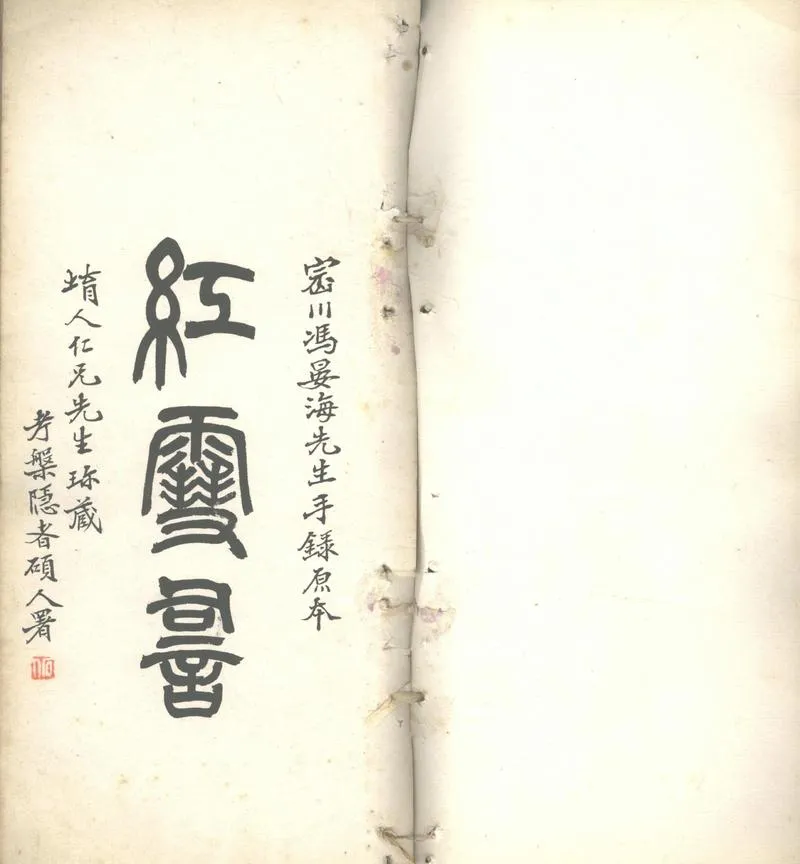 崇川馮晏海先生手録原本
紅雪䛐
堉人仁兄先生珎藏
考槃隱者碩人署